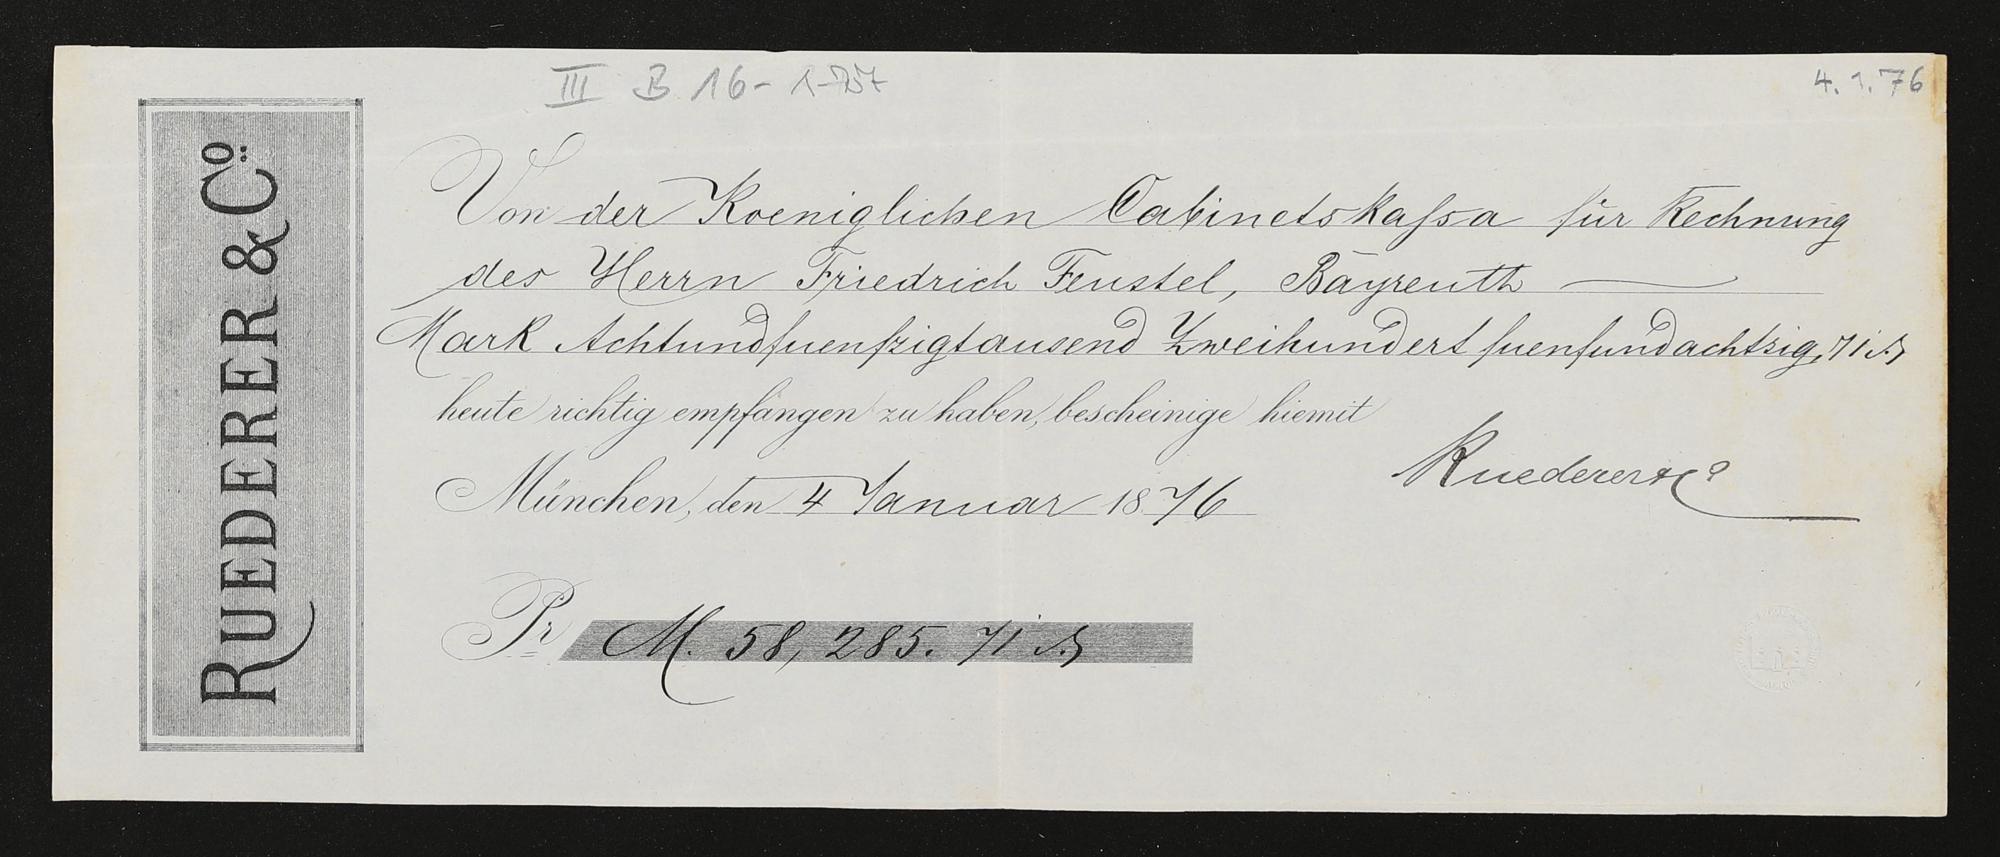 III B 16-1-757
4.1.76
RUEDERER & Co.
Von der Koeniglichen Cabinetskassa für Rechnung
des Herrn Friedrich Feustel, Bayreuth
Mark Achtundfuenfzigtausend Zweihundert fuenfundachtzig, 71 ₰
heute richtig empfangen zu haben, bescheinige hiemit
München, den 4 Januar 1876
Ruederer & Co
Pr M. 58,285. 71 ₰